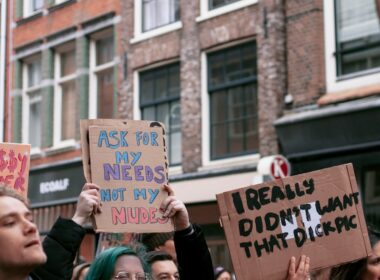 ECOALF
ASK FOR
MY
NEEDS
NOT MY
NUDES
I REALLY
DIDN'T WANT
THAT DICKPIC
K